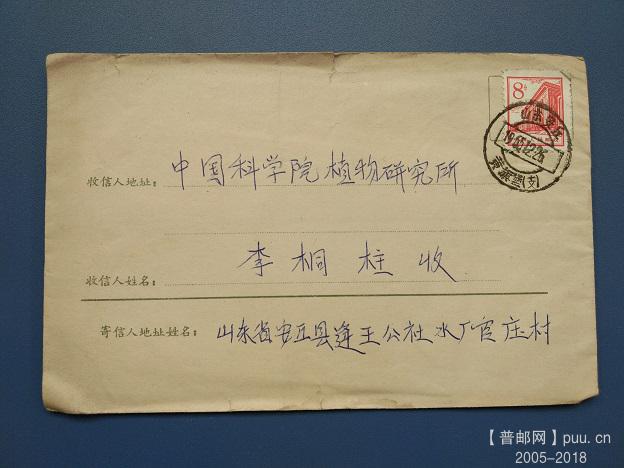 8分
山东安丘
1965.12.26
(支)
收信人地址：中国科学院植物研究所
收信人姓名：李桐柱收
寄信人地址姓名：山东省安丘县逄王公社水厂官庄村
【普邮网】puu.cn
2005-2018